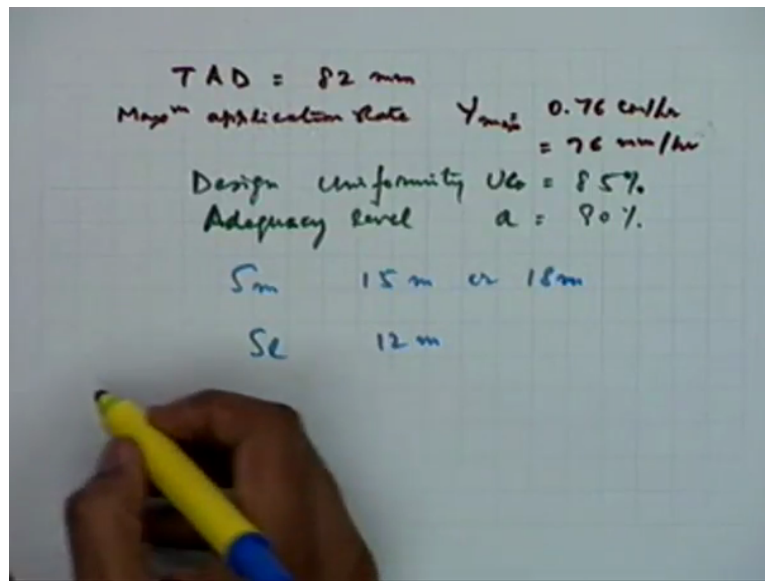 TAD = 82 mm
Maxm application Rate Ymax = 0.76 cm/hr
= 76 mm/hr
Design uniformity UCo = 85%
Adequacy level a = 90%
Sm 15 m or 18m
Se 12 m